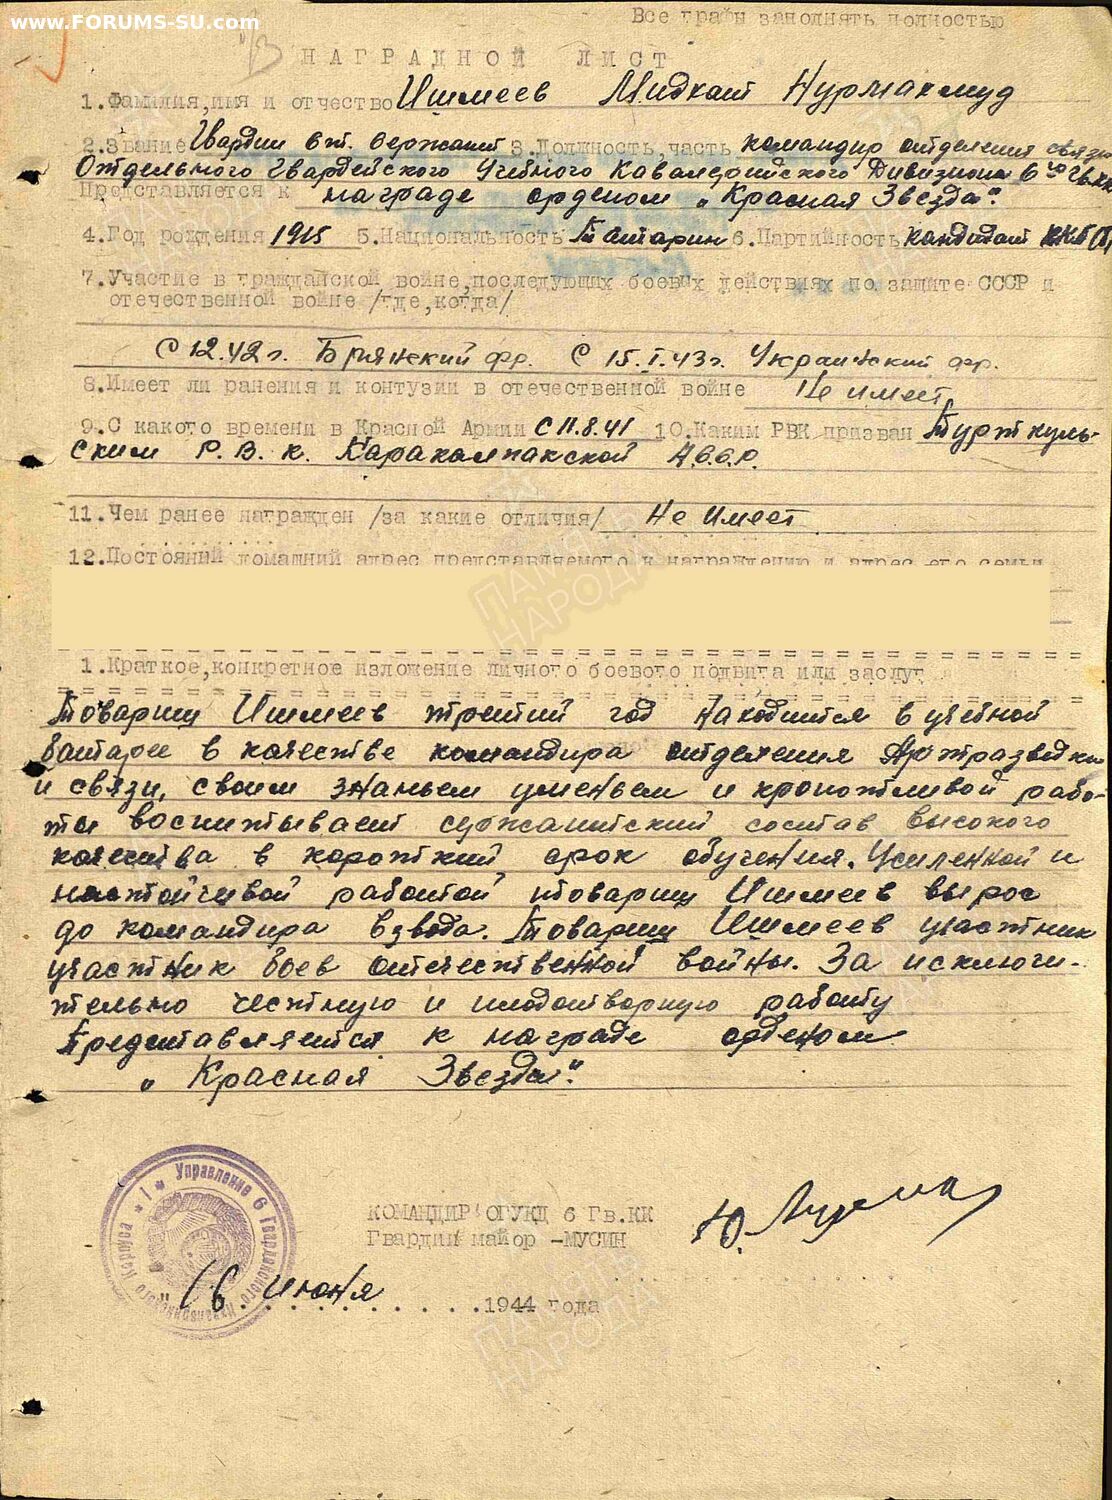 www.FORUMS-SU.com
Все графы заполнять полностью
НАГРАДНОЙ ЛИСТ
1.Фамилия,имя и отчество Ишмеев Мидхат Нурмахмуд
2.Звание Гвардии ст. сержант 3.Должность,часть командир отделения связи
Отдельного Гвардейского Учебного Кавалерийского Дивизиона 6го Гв.КК
Представляется к награде орденом „Красная Звезда".
4.Год рождения 1915 5.Национальность Татарин 6.Партийность кандидат ВКП(б)
7.Участие в гражданской войне,последующих боевых действиях по защите СССР и
отечественной войне /где,когда/
С 12.42г. Брянский фр. С 15.I.43г. Украинский фр.
8.Имеет ли ранения и контузии в отечественной войне Не имеет
9.С какого времени в Красной Армии с 11.8.41 10.Каким РВК призван Турткуль-
ским Р.В.К. Каракалпакской А.С.С.Р.
11.Чем ранее награжден /за какие отличия/ Не имеет
12.Постояний домашний адрес представляемого к награждению и адрес его семьи
1.Краткое,конкретное изложение личного боевого подвига или заслуг
Товарищ Ишмеев третий год находится в учебной
батарее в качестве командира отделения Артразведки
и связи, своим знаньем уменьем и кропотливой рабо-
ты воспитывает сержантский состав высокого
качества в короткий срок обучения. Усиленной и
настойчивой работой товарищ Ишмеев вырос
до командира взвода. Товарищ Ишмеев участник
участник боев отечественной войны. За исключи-
тельно честную и плодотворную работу
Представляется к награде орденом
„Красная Звезда".
КОМАНДИР ОГУКД 6 Гв.КК
Гвардии майор -МУСИН
"16. июня 1944 года
Управление 6 Гвардейского Кавалерийского Корпуса * 1 *
ПАМЯТЬ НАРОДА
ПАМЯТЬ НАРОДА